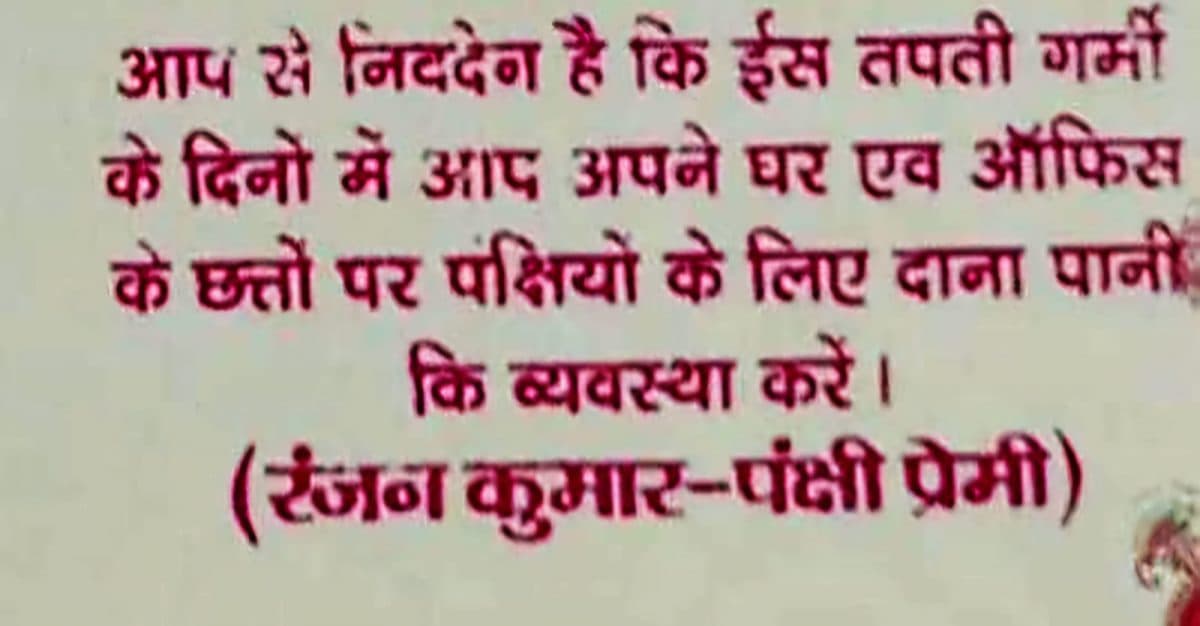 आप से निवदेन है कि ईस तपती गर्मी
के दिनों में आप अपने घर एव ऑफिस
के छत्तों पर पंक्षियों के लिए दाना पानी
कि व्यवस्था करें।
(रंजन कुमार-पंक्षी प्रेमी)